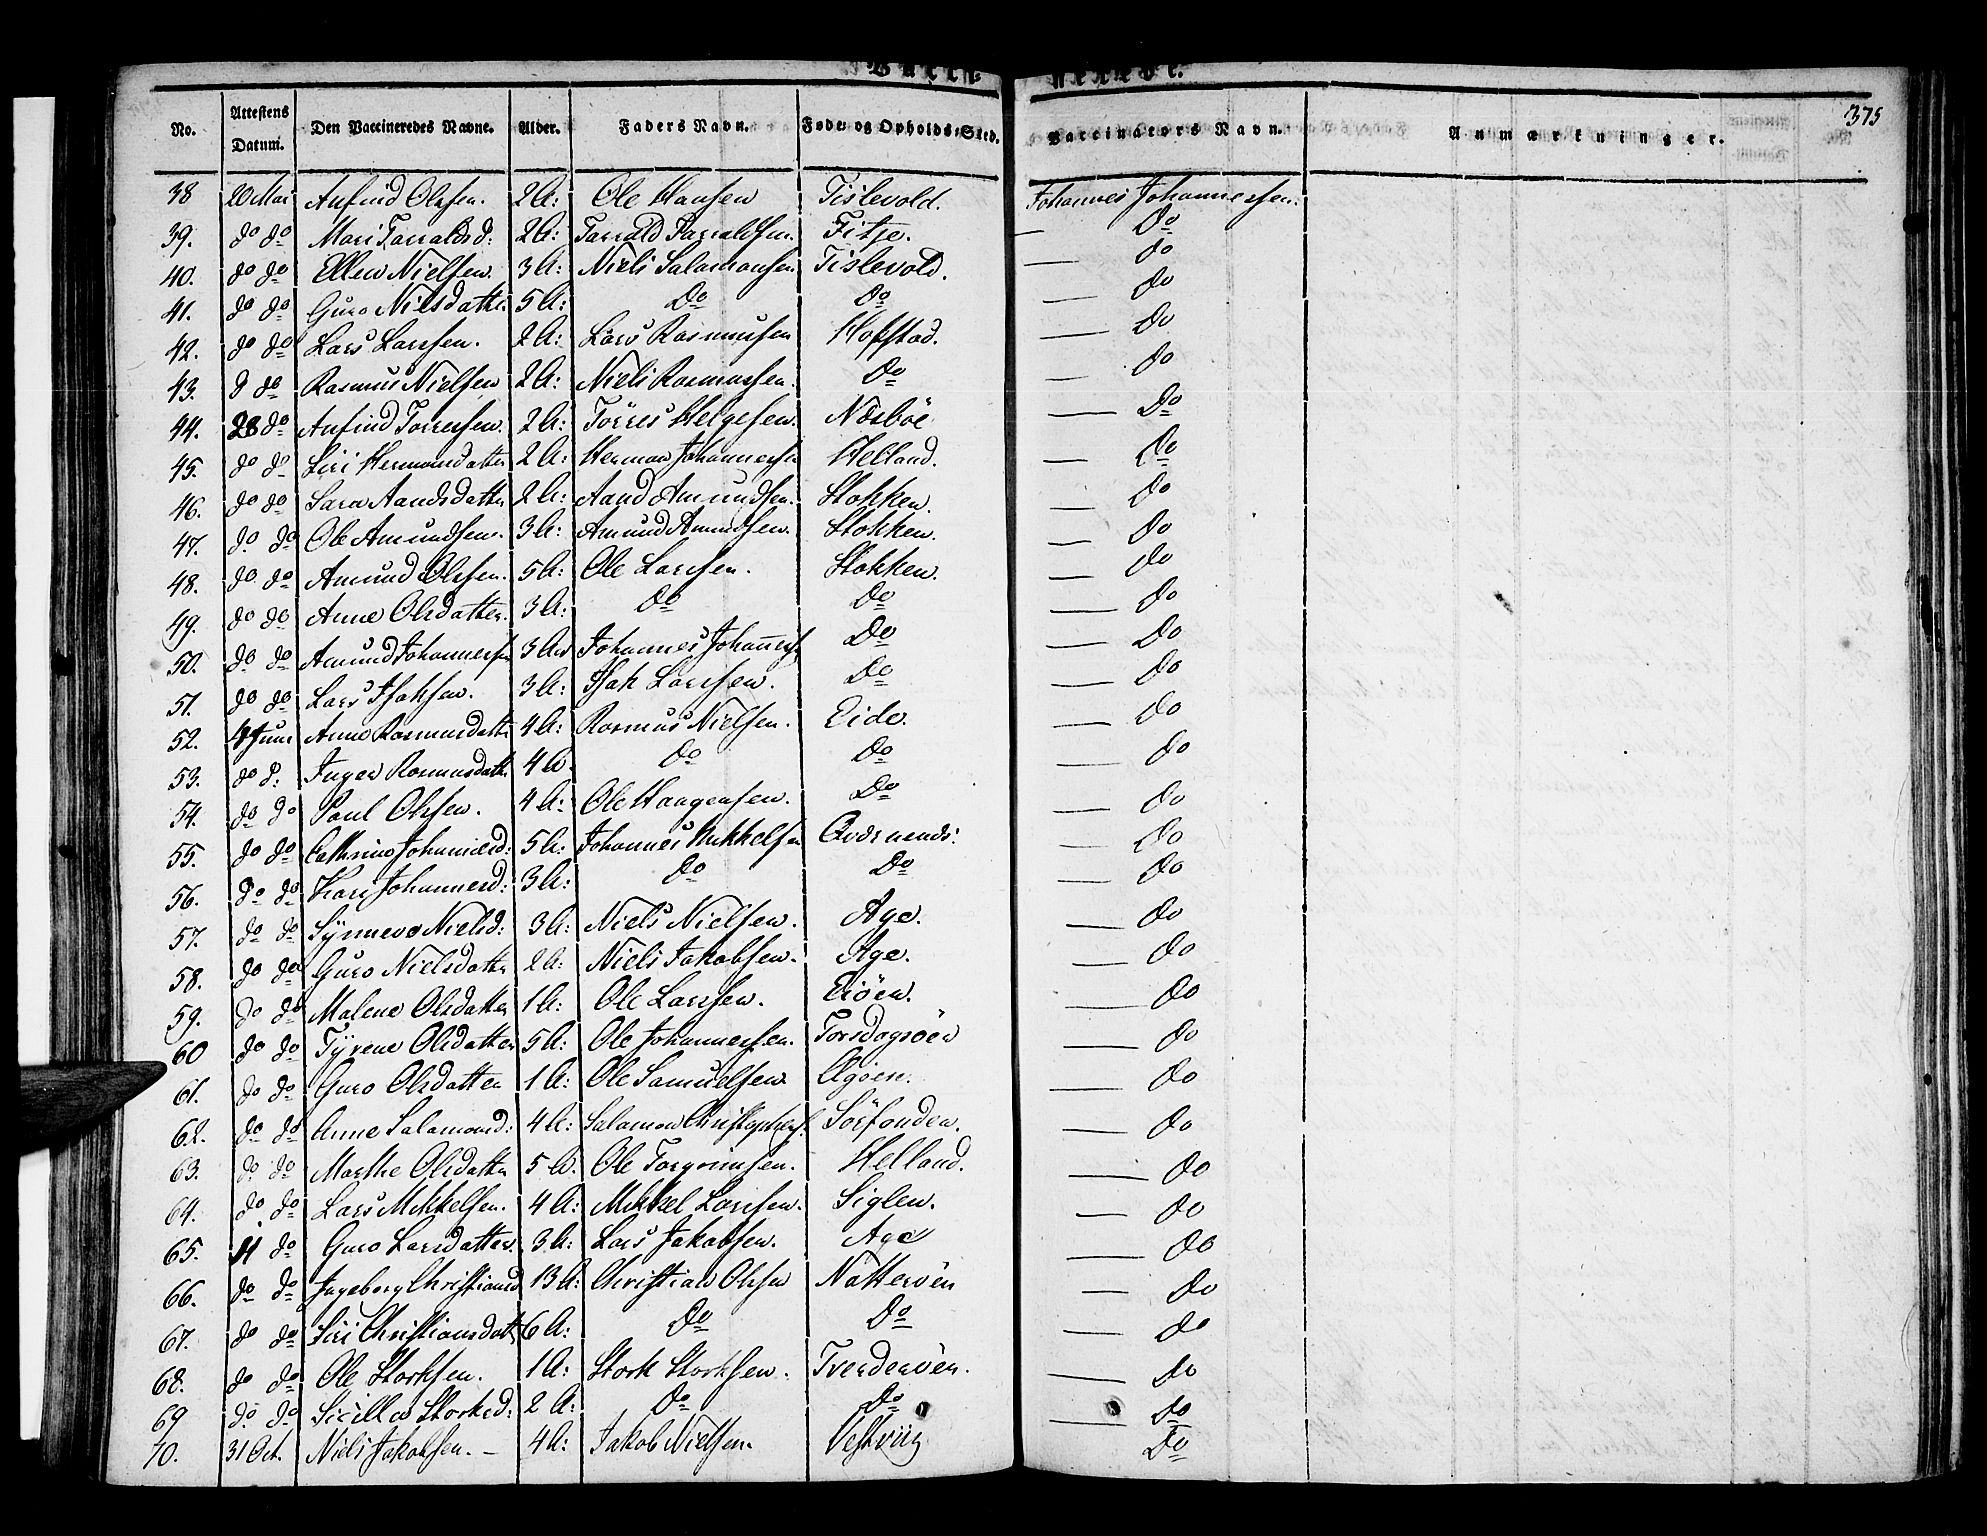 Vacci- nerede.
375
No. Attestens Datum. Den Vaccineredes Navne. Alder. Faders Navn. Føde- og Opholds-Sted. Vaccinators Navn. Anmærkninger.
38 20 Mai Anfind Olssen. 2 A: Ole Hansen Tislevold. Johannes Johannessen.
39. do do Mari Tarraldsd: 2 A: Tarrald Tarraldsen. Fitje. — Do
40. do do Ellen Nielsen. 3 A: Niels Salamonsen Tislevold. — do
41. do do Guro Nielsdatter 5 A: Do Do — do
42. do do Lars Larssen. 2 A: Lars Rasmussen Hofstad. — Do
43. d do Rasmus Nielsen 2 A: Niels Rasmussen. Do — do
44. 28 do Anfind Torressen. 2 A: Törres Helgesen. Næsböe — Do
45. do do Siri Hermansdatter 2 A: Herman Johannessen Helland. — Do
46. do do Sara Aandsdatter 2 A: Aand Amundsen. Stokken. — Do
47. do do Ole Amundsen. 3 A: Amund Amundsen. Stokken. — Do
48. do do Amund Olssen. 5 A: Ole Larssen. Stokken. — Do
49. do do Anne Olsdatter. 3 A: Do Do — Do
50. do do Amund Johannessen 3 A Johannes Johanness. Do — Do
51. do do Lars Isaksen. 3 A: Isak Larssen. Do — Do
52. 4 Juni Anne Rasmusdatter 4 A: Rasmus Nielsen. Eide. — Do
53. do d. Inger Rasmusdatter 4 A. Do Do — do
54. do do Paul Olssen. 4 A: Ole Haagensen. Do — do
55. do do Cathrine Johannesd: 5 A: Johannes Mikkelsen — do
56. do do Kari Johannesd: 3 A: Do Do — do
57. do do Synneve Nielsd: 3 A: Niels Nielsen. Age. — do
58. do do Guro Nielsdatter 2 A: Niels Jakobsen. Age. — do
59. do do Malene Olsdatter 1 A: Ole Larssen. — do
60 do do Tyrene Olsdatter 5 A: Ole Johannessen. Torsdagsöen — do
61. do do Guro Olsdatter 1 A: Ole Samuelsen Agöen. — do
62. do do Anne Salamonsd: 4 A: Salamon Christophers. Sörfonden. — do
63. do do Marthe Olsdatter 5 A. Ole Torgrimsen. Helland. — do
64. do do Lars Mikkelsen. 4 A: Mikkel Larssen. Siglen. — do
65. 11 do Guro Larsdatter. 3 A: Lars Jakobsen. Age — do
66. do do Ingeborg Christiansd 13 A: Christian Olssen Natteröen — do
67. do do Siri Christiansdatt 6 A: Do Do — do
68. do do Ole Storksen. 1 A: Stork Storksen. Tvenderöen. — do
69 do do Sicilla Storksd: 2 A: Do Do — do
70. 31 Oct. Niels Jakobsen. — 4 A: Jakob Nielsen. Vestviig Do